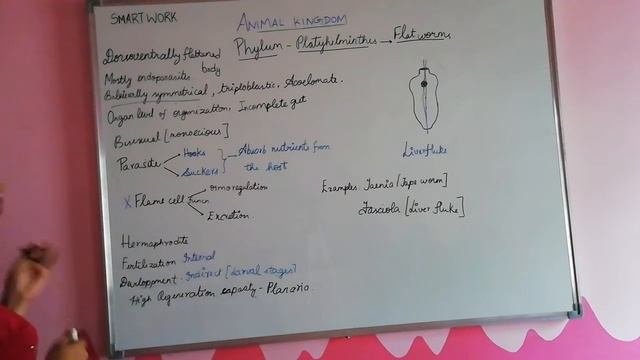 SMART WORK
ANIMAL KINGDOM
Phylum - Platyhelminthis → Flat worms
Dorsoventrally flattened body
Mostly endoparasites
Bilaterally symmetrical, triploblastic, Acoelomate.
Organ level of organization, Incomplete gut
Bisexual [monoecious]
Parasite
Hooks
Suckers
Absorb nutrients from
the host
Liverfluke
X Flame cell
osmoregulation
Excretion.
Examples: Taenia [Tape worm]
Fasciola [Liver fluke]
Hermaphrodite
Fertilization Internal
Development - Indirect [larval stages]
High Regeneration capasity - Planaria.